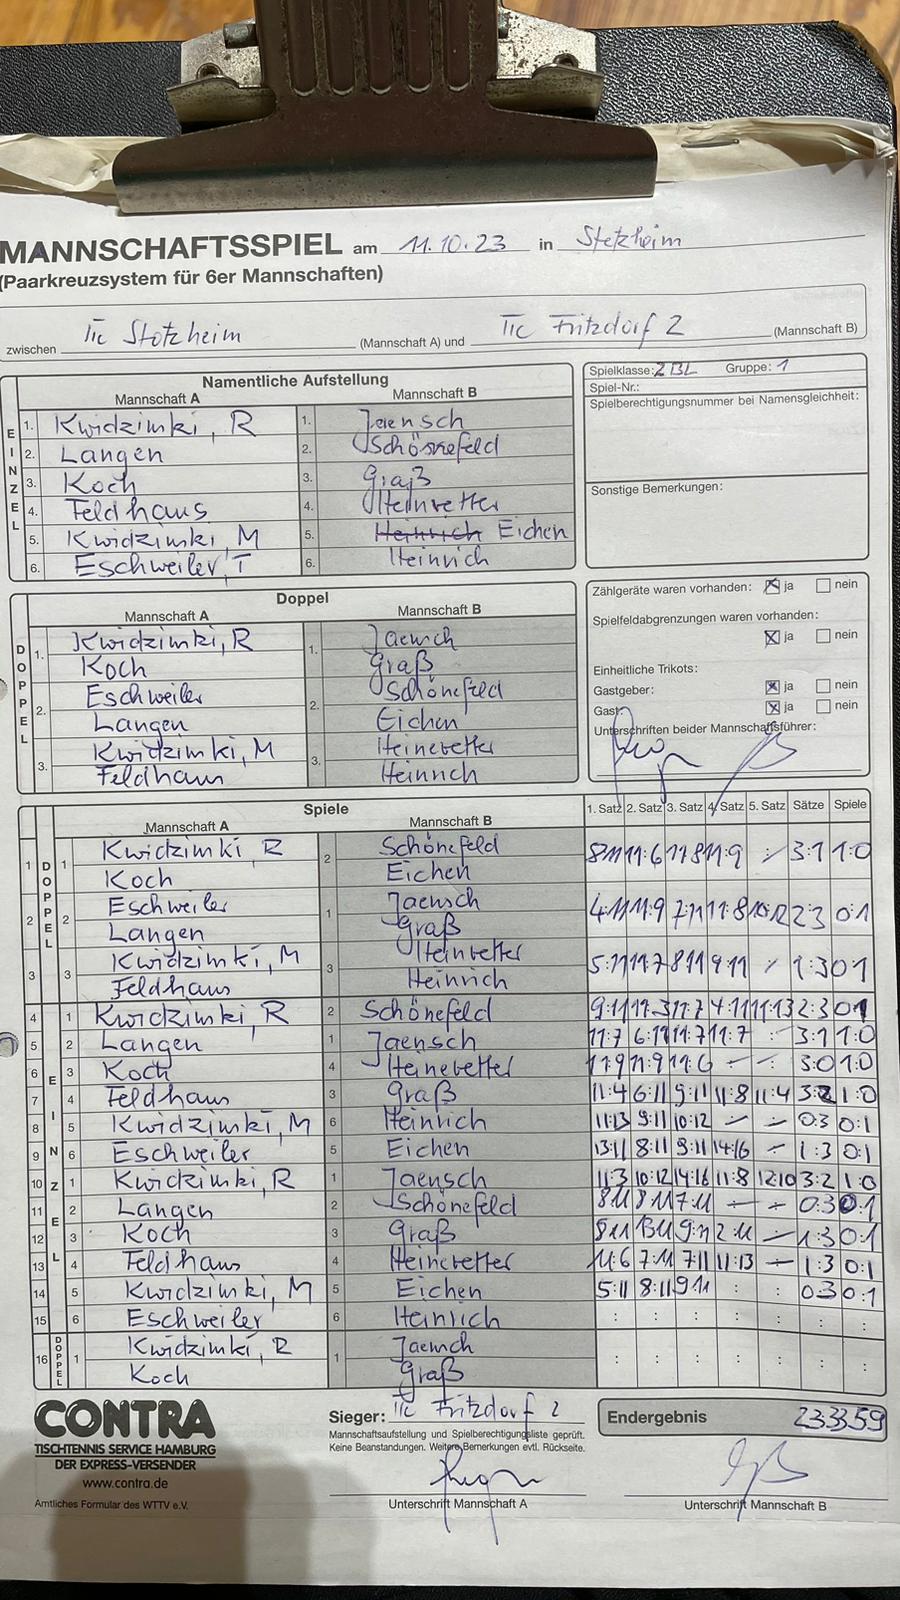 MANNSCHAFTSSPIEL am 11.10.23 in Stotzheim
(Paarkreuzsystem für 6er Mannschaften)
zwischen TTC Stotzheim (Mannschaft A) und TTC Fritzdorf 2 (Mannschaft B)
Namentliche Aufstellung
Mannschaft A Mannschaft B
EINZEL
1. Kwidzimki, R 1. Jaensch
2. Langen 2. Schönefeld
3. Koch 3. Graß
4. Feldhaus 4. Heinretter
5. Kwidzimki, M 5. Heinrich Eichen
6. Eschweiler, T 6. Heinrich
Spielklasse: 2 BL Gruppe: 1
Spiel-Nr.:
Spielberechtigungsnummer bei Namensgleichheit:
Sonstige Bemerkungen:
Doppel
Mannschaft A Mannschaft B
DOPPEL
1. Kwidzimki, R 1. Jaensch
Koch Graß
2. Eschweiler 2. Schönefeld
Langen Eichen
3. Kwidzimki, M 3. Heineretter
Feldhaus Heinrich
Zählgeräte waren vorhanden: ja nein
Spielfeldabgrenzungen waren vorhanden:
ja nein
Einheitliche Trikots:
Gastgeber: ja nein
Gast: ja nein
Unterschriften beider Mannschaftsführer:
Spiele
Mannschaft A Mannschaft B 1. Satz 2. Satz 3. Satz 4. Satz 5. Satz Sätze Spiele
DOPPEL
1 1 Kwidzimki R 2 Schönefeld 8:11 11:6 11:8 11:9 : 3:1 1:0
Koch Eichen
2 2 Eschweiler 1 Jaensch 4:11 11:9 7:11 11:8 10:12 2:3 0:1
Langen Graß
3 3 Kwidzimki, M 3 Heinretter 5:11 11:7 8:11 9:11 : 1:3 0:1
Feldhaus Heinrich
EINZEL
4 1 Kwidzimki, R 2 Schönefeld 9:11 11:3 11:7 4:11 11:13 2:3 0:1
5 2 Langen 1 Jaensch 11:7 6:11 11:7 11:7 : 3:1 1:0
6 3 Koch 4 Heineretter 11:9 11:9 11:6 : : 3:0 1:0
7 4 Feldhaus 3 Graß 11:4 6:11 9:11 11:8 11:4 3:2 1:0
8 5 Kwidzimki, M 6 Heinrich 11:13 9:11 10:12 : : 0:3 0:1
9 6 Eschweiler 5 Eichen 13:11 8:11 9:11 14:16 : 1:3 0:1
10 1 Kwidzimki, R 1 Jaensch 11:3 10:12 14:16 11:8 12:10 3:2 1:0
11 2 Langen 2 Schönefeld 8:11 8:11 7:11 : : 0:3 0:1
12 3 Koch 3 Graß 8:11 13:11 9:11 2:11 : 1:3 0:1
13 4 Feldhaus 4 Heineretter 11:6 7:11 7:11 11:13 : 1:3 0:1
14 5 Kwidzimki, M 5 Eichen 5:11 8:11 9:11 : : 0:3 0:1
15 6 Eschweiler 6 Heinrich : : : : : : :
DOPPEL
16 1 Kwidzimki, R 1 Jaensch : : : : : : :
Koch Graß
CONTRA
TISCHTENNIS SERVICE HAMBURG
DER EXPRESS-VERSENDER
www.contra.de
Amtliches Formular des WTTV e.V.
Sieger: TTC Fritzdorf 2
Mannschaftsaufstellung und Spielberechtigungsliste geprüft.
Keine Beanstandungen. Weitere Bemerkungen evtl. Rückseite.
Endergebnis 23:33 5:9
Unterschrift Mannschaft A Unterschrift Mannschaft B